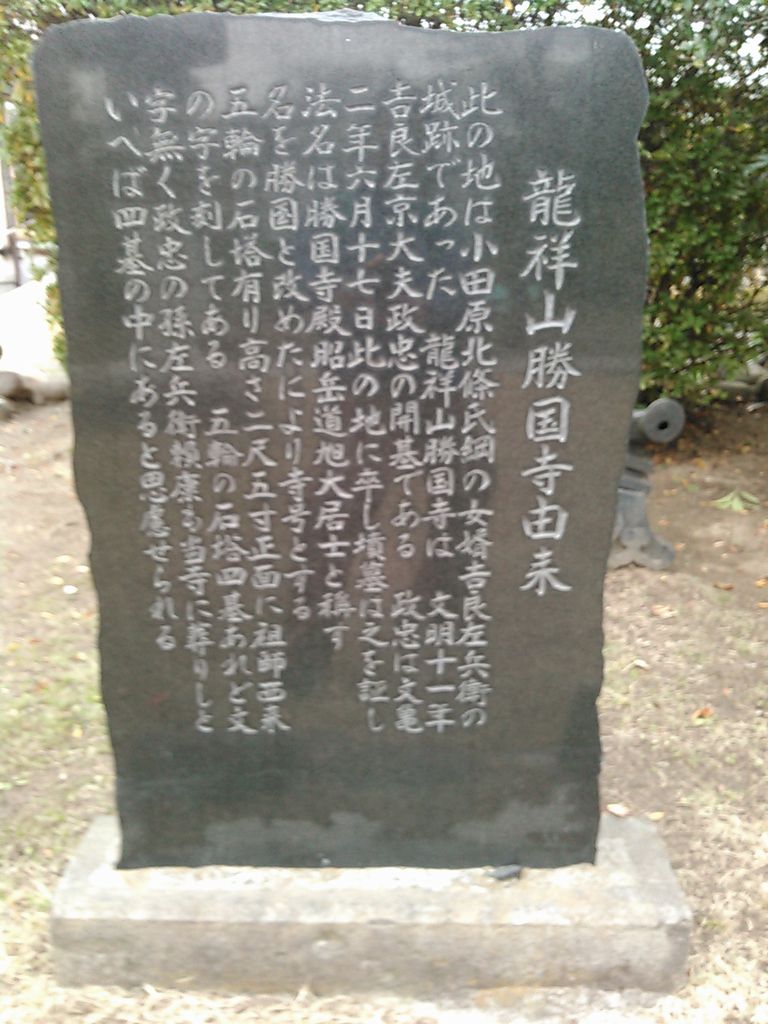 龍祥山勝国寺由来
此の地は小田原北條氏綱の女婿吉良左兵衛の
城跡であった　龍祥山勝国寺は　文明十一年
吉良左京大夫政忠の開基である　政忠は文亀
二年六月十七日此の地に卒し墳墓は之を証し
法名は勝国寺殿昭岳道旭大居士と稱す
名を勝国と改めたにより寺号とする
五輪の石塔有り高さ二尺五寸正面に祖師西来
の字を刻してある　五輪の石塔四基あれど文
字無く政忠の孫左兵衛頼康も当寺に葬りしと
いへば四基の中にあると思慮せられる